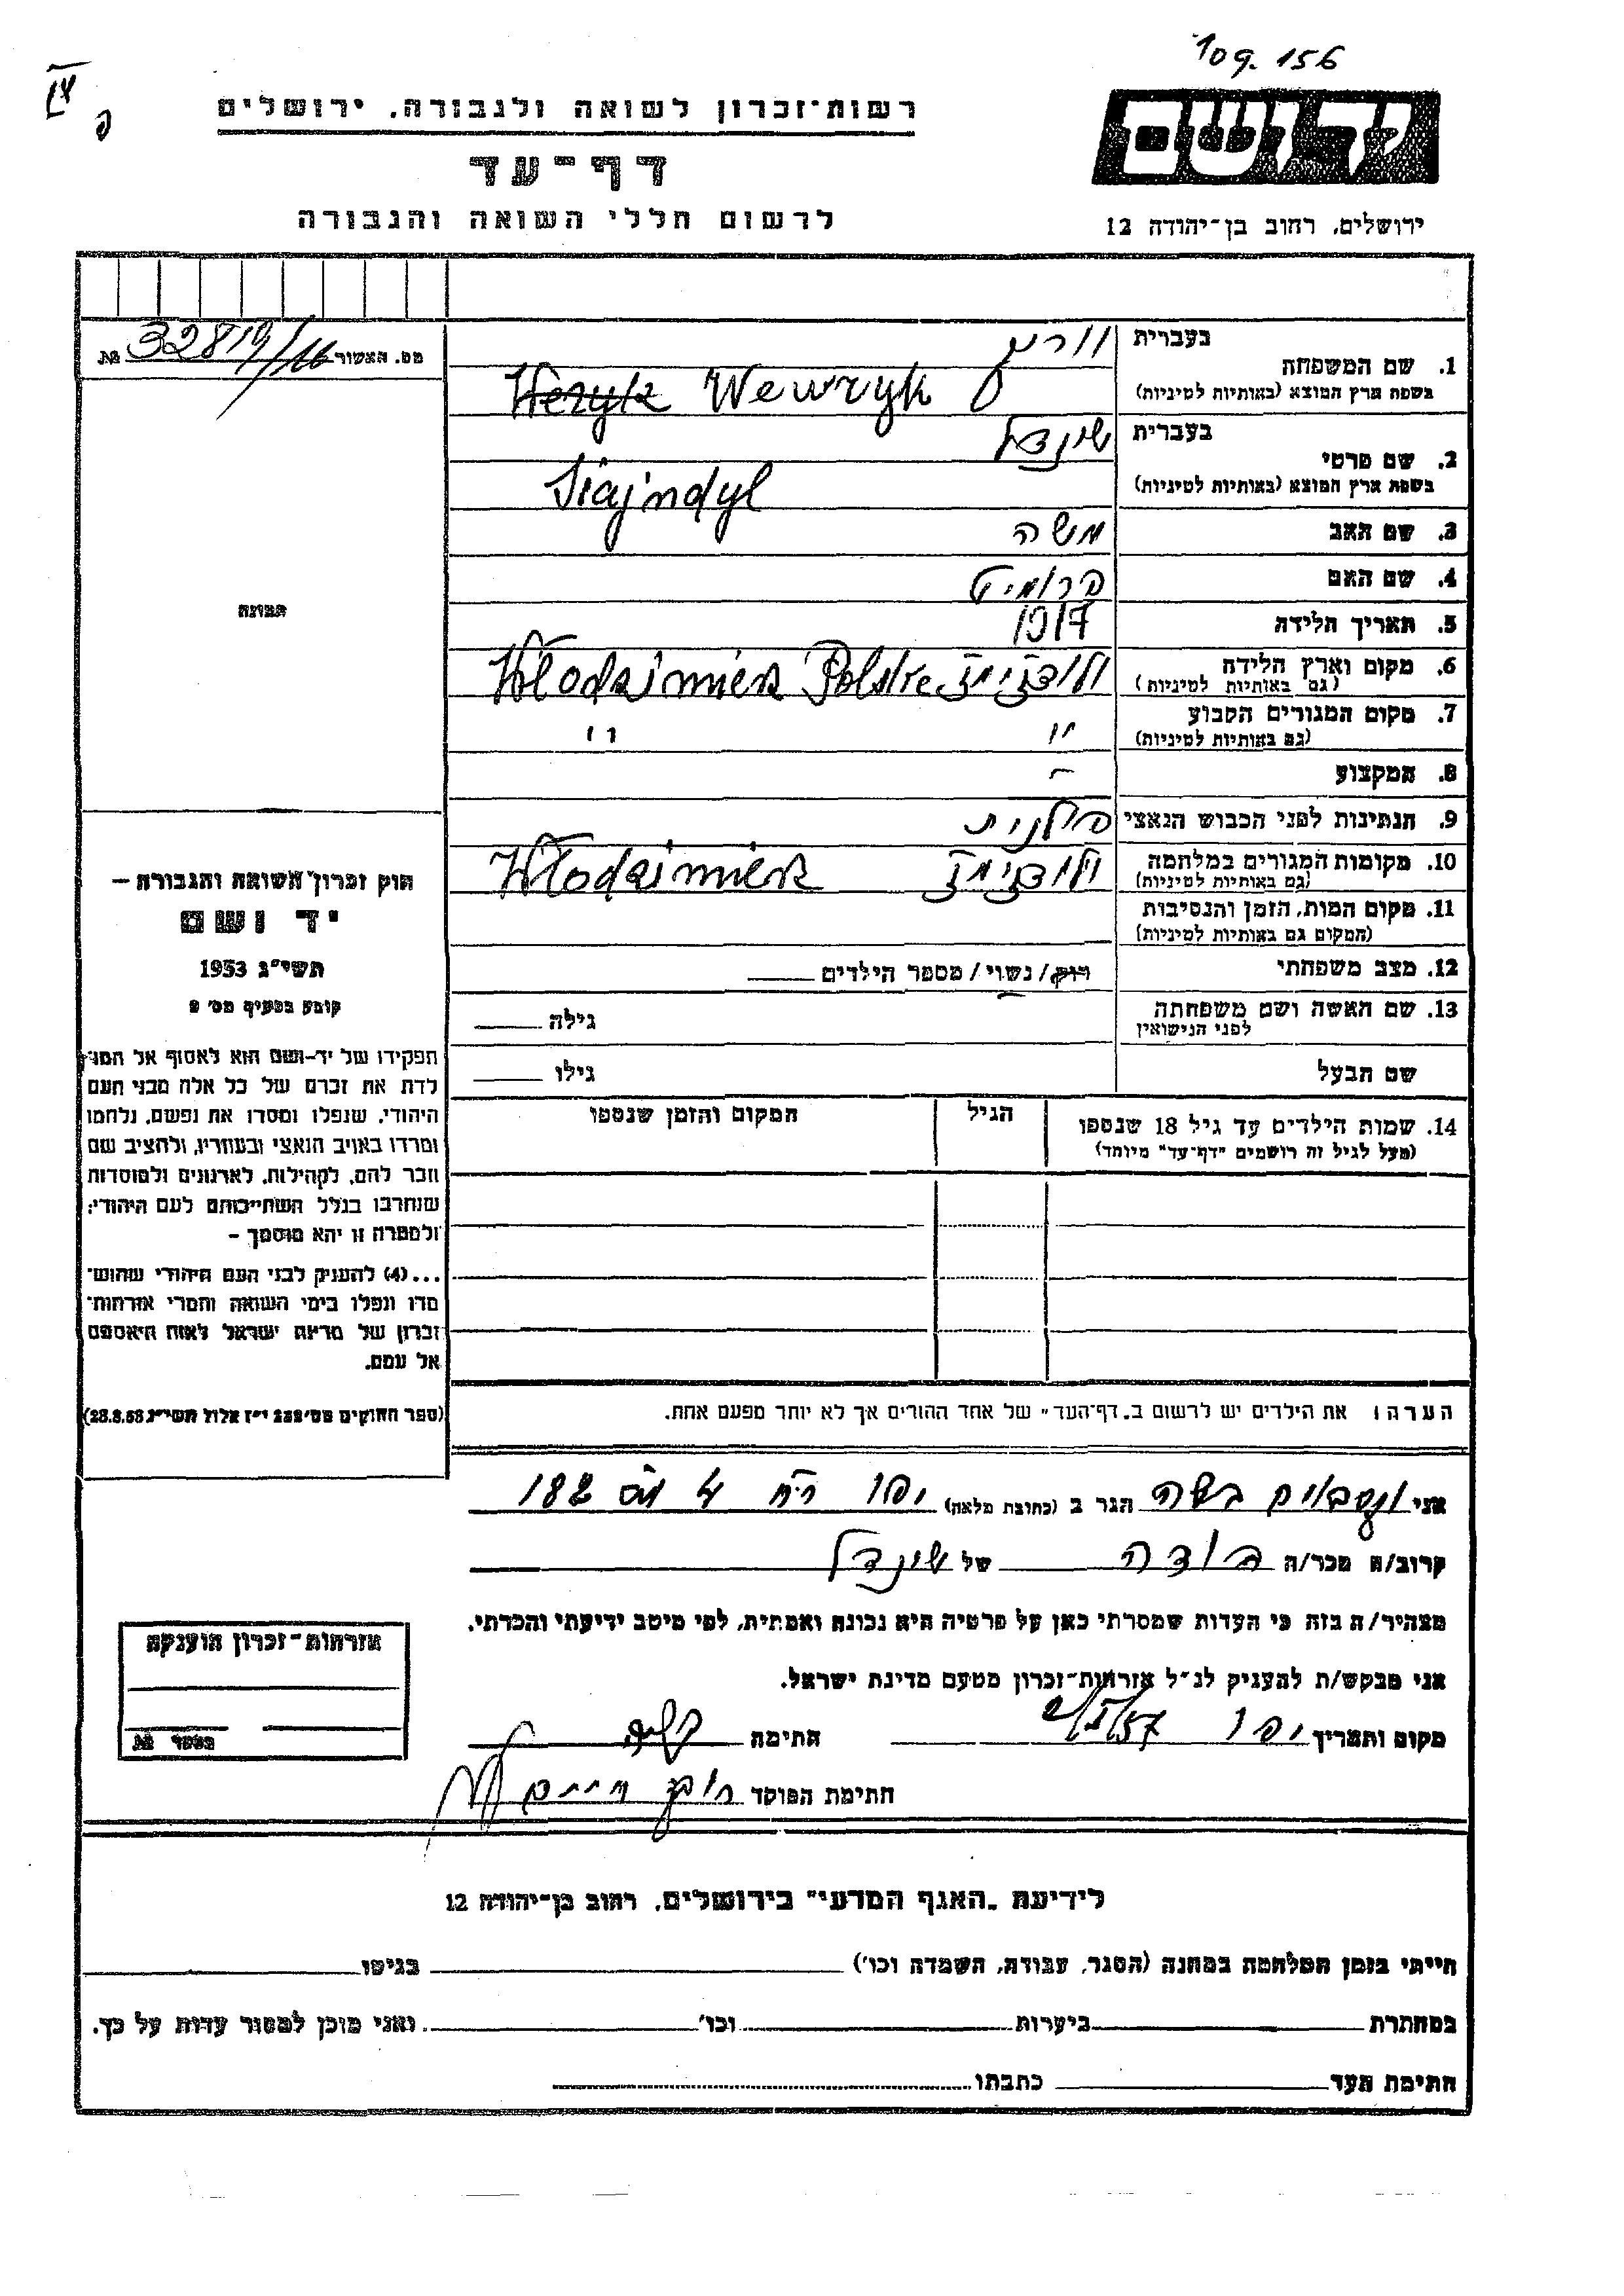 109.156
רשות־זכרון לשואה ולגבורה, ירושלים
יד ושם
דף־עד
לרשום חללי השואה והגבורה
ירושלים, רחוב בן־יהודה 12
מס. האשור 32819/16 №
בעברית
1. שם המשפחה
בשפת ארץ המוצא (באותיות לטיניות) Wewryk
בעברית שינדל
2. שם פרטי
בשפת ארץ המוצא (באותיות לטיניות) Siajndyl
3. שם האב משה
4. שם האם
5. תאריך הלידה 1917
6. מקום וארץ הלידה ולודזימז Włodzimierz Polska
(גם באותיות לטיניות)
7. מקום המגורים הקבוע " "
(גם באותיות לטיניות)
8. המקצוע –
9. הנתינות לפני הכבוש הנאצי פולנית
10. מקומות המגורים במלחמה ולודזימז Włodzimierz
(גם באותיות לטיניות)
11. מקום המות, הזמן והנסיבות
(המקום גם באותיות לטיניות)
12. מצב משפחתי רווק/נשוי/מספר הילדים
13. שם האשה ושם משפחתה גילה
לפני הנישואין
שם הבעל גילו
14. שמות הילדים עד גיל 18 שנספו הגיל המקום והזמן שנספו
(מעל לגיל זה רושמים "דף־עד" מיוחד)
הערה: את הילדים יש לרשום ב„דף־העד" של אחד ההורים אך לא יותר מפעם אחת.
תמונה
חוק זכרון השואה והגבורה –
יד ושם
תשי"ג 1953
קובע בסעיף מס' 2
תפקידו של יד־ושם הוא לאסוף אל המו־
לדת את זכרם של כל אלה מבני העם
היהודי, שנפלו ומסרו את נפשם, נלחמו
ומרדו באויב הנאצי ובעוזריו, ולהציב שם
וזכר להם, לקהילות, לארגונים ולמוסדות
שנחרבו בגלל השתייכותם לעם היהודי;
ולמטרה זו יהא מוסמך –
...(4) להעניק לבני העם היהודי שהוש־
מדו ונפלו בימי השואה והמרי אזרחות־
זכרון של מדינת ישראל לאות היאספם
אל עמם.
(ספר החוקים מס' 132 י"ז אלול תשי"ג 28.8.53)
אני בשה הגר ב (כתובת מלאה) יפו 4 מס 182
קרוב/ה מכר/ה דודה של שינדל
מצהיר/ה בזה כי העדות שמסרתי כאן על פרטיה היא נכונה ואמתית, לפי מיטב ידיעתי והכרתי.
אני מבקש/ת להעניק לנ"ל אזרחות־זכרון מטעם מדינת ישראל.
מקום ותאריך יפו 2/5/57 חתימה
חתימת הפוקד
אזרחות־זכרון הוענקה
מספר №
לידיעת „האגף המדעי" בירושלים, רחוב בן־יהודה 12
הייתי בזמן המלחמה במחנה (הסגר, עבודה, השמדה וכו') בגיטו
במחתרת ביערות וכו' ואני מוכן למסור עדות על כך.
חתימת העד כתבתו